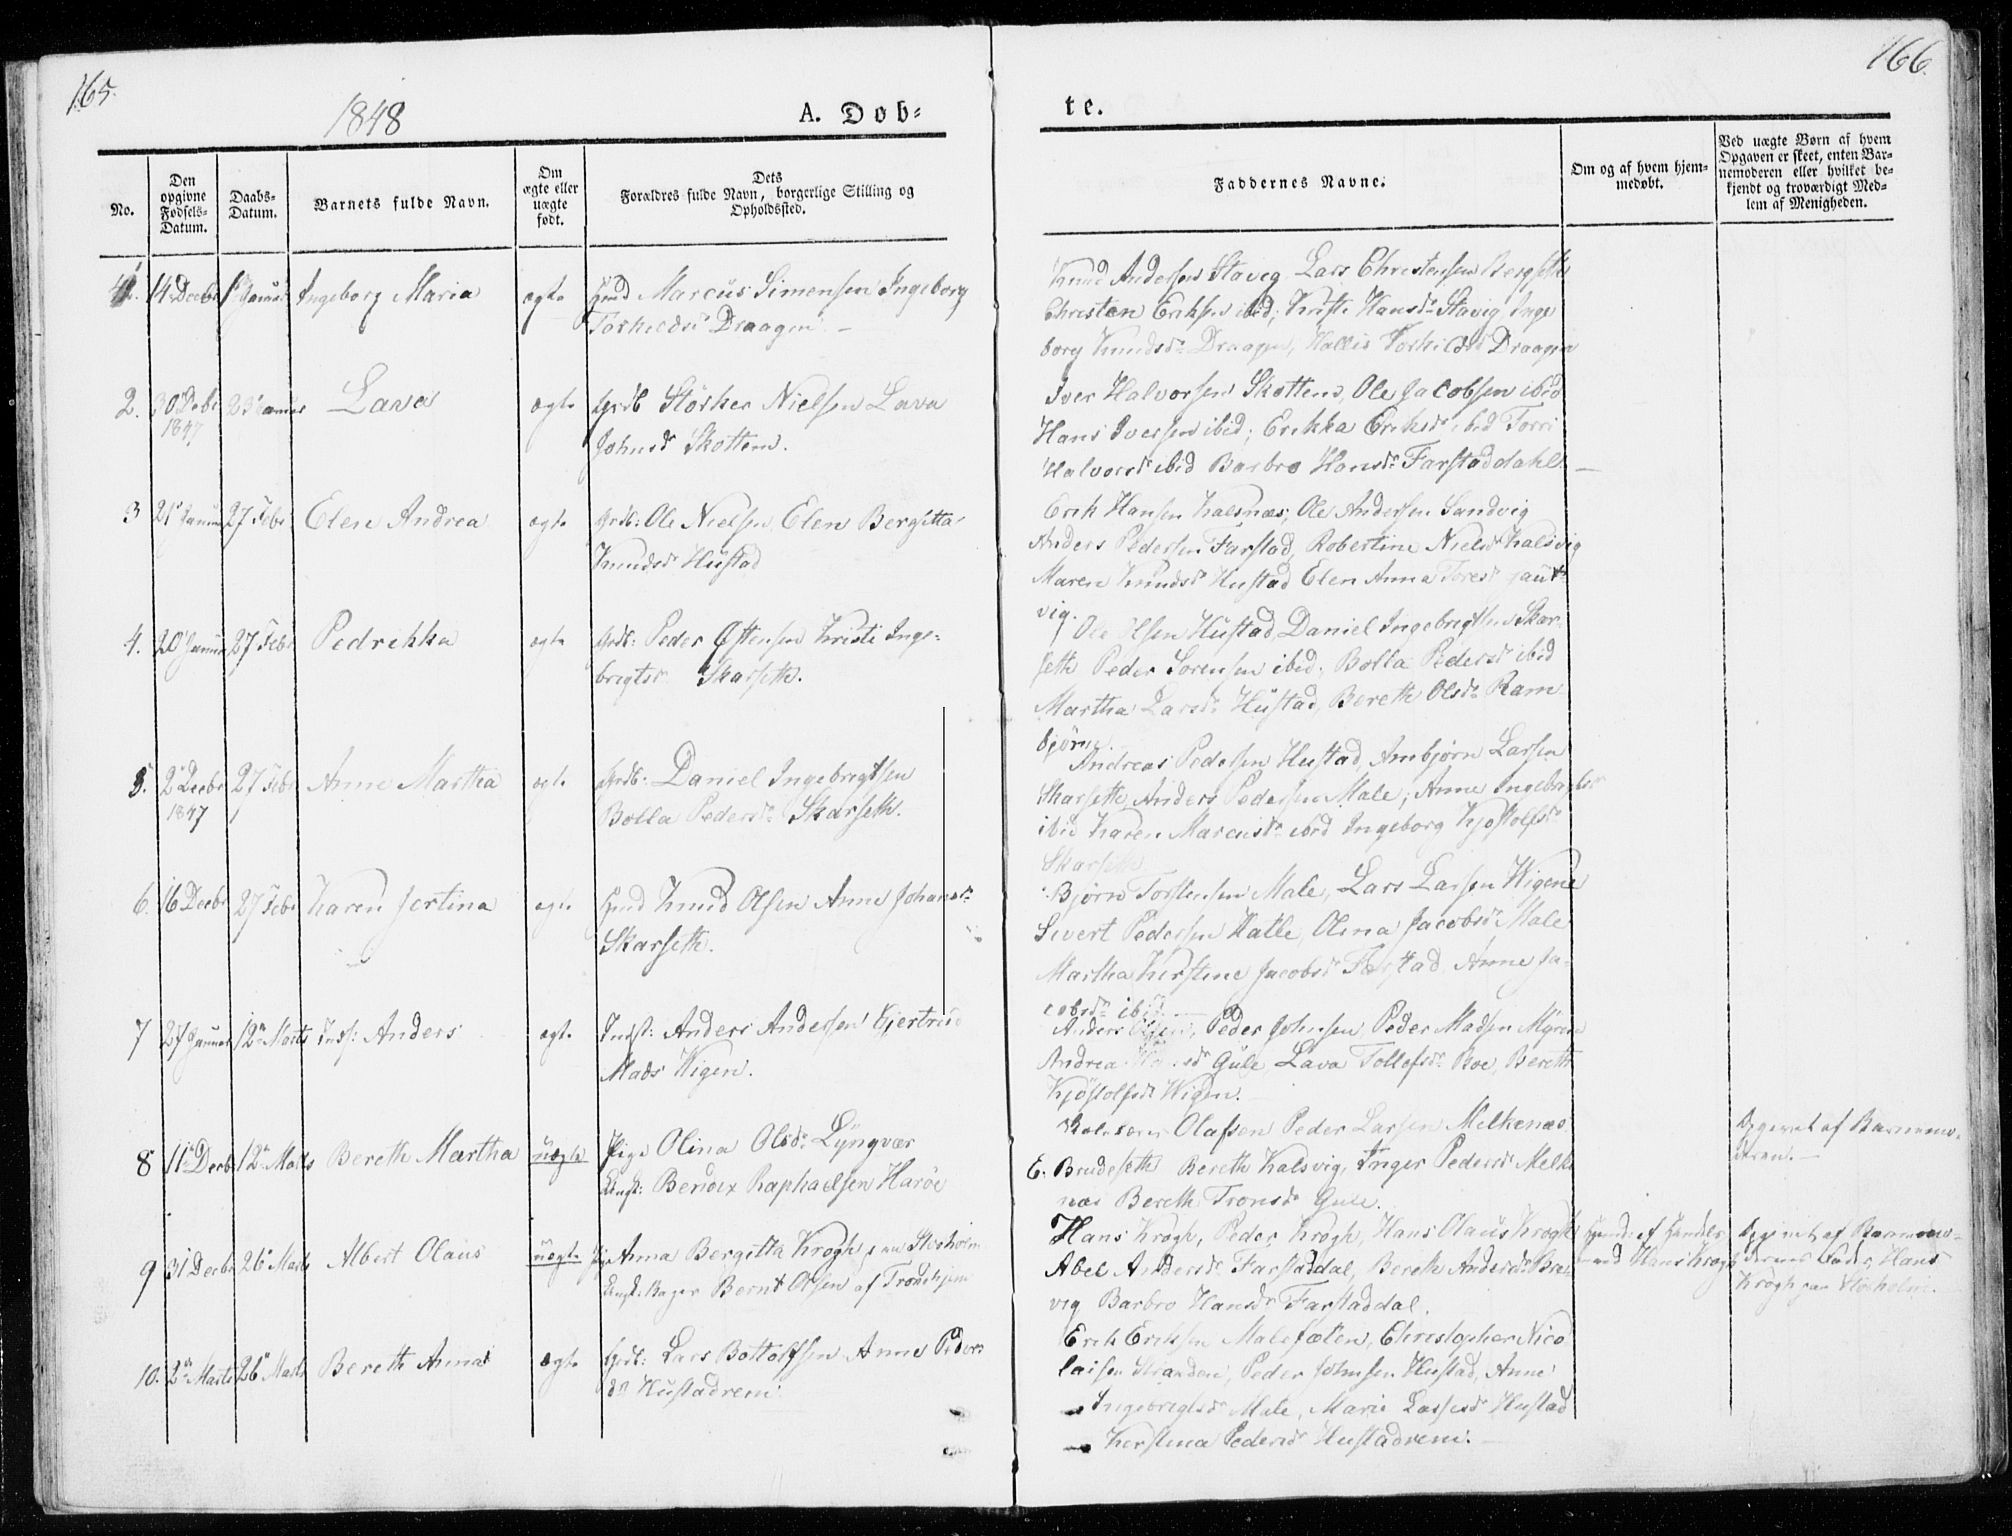 165.
166.
1848
A. Døb-
te.
No.
Den opgivne Fødsels-Datum.
Daabs-Datum.
Barnets fulde Navn.
Om ægte eller uægte født.
Dets
Forældres fulde Navn, borgerlige Stilling og
Opholdssted.
Faddernes Navne.
Om og af hvem hjem-
medøbt.
Ved uægte Børn af hvem
Opgaven er skeet, enten Bar-
nemoderen eller hvilket be-
kjendt og troværdigt Med-
lem af Menigheden.
14 Decbr Ingeborg Maria ægte Marcus Simensen Ingeborg
Torkildsdr Draagen.
Knud Andersen Stavig Lars Christensen Bergseth
Christen Eriksen ibid; Hansdr Stavig Inge
borg Knudsdr Draagen, Torkildsdr Draagen
2. 30 Debr 23 Januar Lava ægte Grdb Størker Nielsen Lava
1847
Johnsdr Skottem.
Iver Halvorsen Skottem, Ole Jacobsen ibid
Hans Iversen ibid; Erikka Eriksdr ibid Torri
Halvorsdr ibid Barbro Hansdr Farstaddahl
3 21 Januar 27 Febr Elen Andrea ægte Grdb: Ole Nielsen, Elen Bergitta
Knudsdr Hustad
Erik Hansen Kalsnæs, Ole Andersen Sandvig
Anders Pedersen Farstad, Robertine Nielsdr Kalsvig
Maren Knudsdr Hustad Elen Anna Toresdr
vig.
4. 20 Januar 27 Febr Pedrikka ægte Grdb: Peder Østensen Kristi Inge-
brigtsdr Skarseth.
Ole Olsen Hustad, Daniel Ingebrigtsen Skar-
seth Peder Sørensen ibid; Bolla Pedersdr ibid
Martha Larsdr Hustad, Bereth Olsdr Ram
bjørn.
5. 2 Decbr 27 Febr Anne Martha ægte Grdb: Daniel Ingebrigtsen
1847
Bolla Pedersdr Skarseth.
Andreas Pedersen Hustad, Arnbjørn Larsen
Skarseth, Anders Pedersen Male; Anne Ingebrigtsdr
ibid Karen Marcusdr ibid Ingeborg Kjøstolfsdr
Skarseth
6. 16 Decbr 27 Febr Karen Jertina ægte Knud Olsen Anne Johansdr
Skarseth.
Bjørn Torstensen Male, Lars Larsen Wigene
Sivert Pedersen Hatle, Olina Jacobsdr Male
Martha Kirstine Jacobsdr Farstad Anne Ja-
cobsdr ibid
7 27 Januar 12 Marts Anders ægte Indst: Anders Andersen Gjertrud
Mads Wigen.
Anders Olsen, Peder Johnsen, Peder Madsen Myren
Andrea Gule, Lava Tollefsdr Boe, Bereth
Kjøstolfsdr Wigen.
8 11 Decbr 12 Marts Bereth Martha uægte Pige Olina Olsdr Lyngvær
Ungk: Bendix Raphaelsen Harøe
Olafsen Peder Larsen Melkenæs
E. Brudeseth Bereth Kalsvig, Inger Pedersdr Melke
næs Bereth Tronsdr Gule.
Opgivet af Barnemo-
deren.
9 31 Decbr 26 Marts Albert Olaus uægte Pige Anna Bergitta Krogh paa Storholm
Ungk: Bager Bernt Olsen af Trondhjem
Hans Krogh, Peder Krogh, Hans Olaus Krogh
Abel Andersdr Farstaddal, Bereth Andersdr
vig Barbro Hansdr Farstaddal.
Hjemd: af Handels-
mand Hans Krogh
Opgivet af Barnemo-
derens Fader, Hans
Krogh paa Storholm.
10. 2 Marts 26 Marts Bereth Anna ægte Grdb: Lars Bottolfsen Anne Peders
dr Hustadrem.
Erik Eriksen Malefæten, Christopher Nico
laisen Stranden, Peder Johnsen Hustad, Anne
Ingebrigtsdr Male, Marie Lassesdr Hustad
Kirstina Pedersdr Hustadrem.